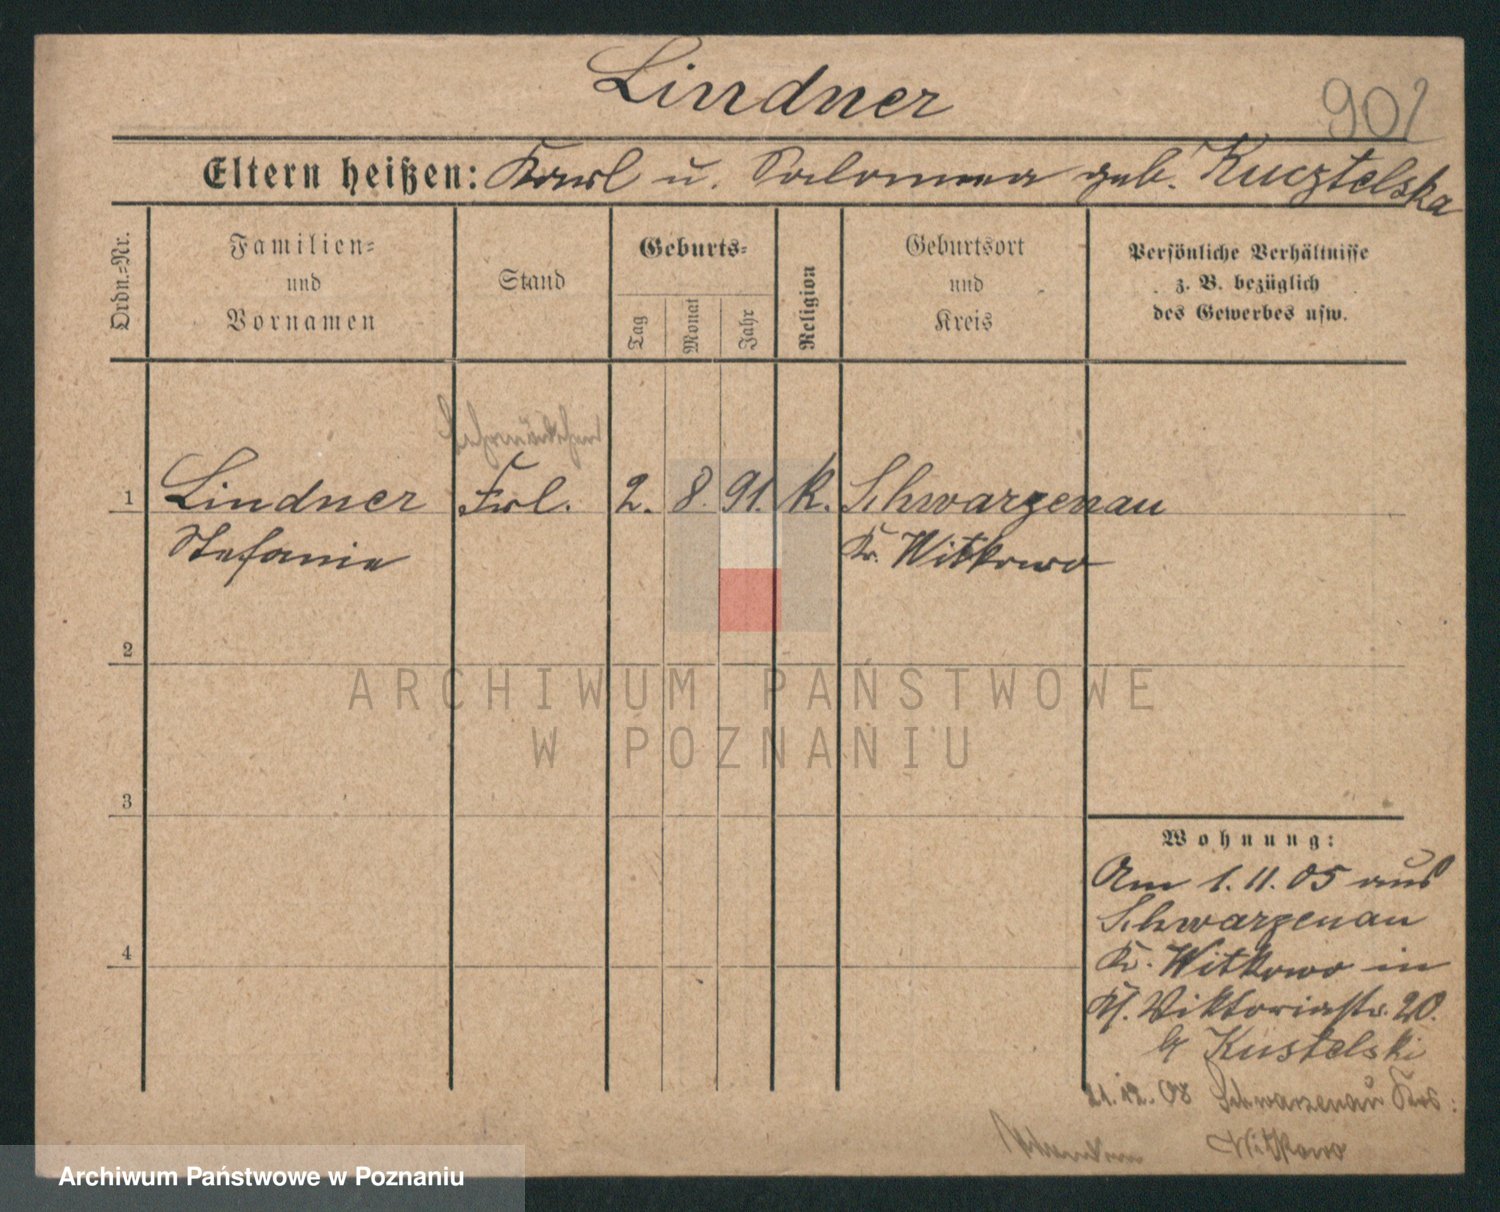 Lindner
901
Eltern heißen: Karl u. Salomea geb. Kucztelska
Ordn.-Nr.
Familien-
und
Vornamen
Stand
Geburts-
Tag
Monat
Jahr
Religion
Geburtsort
und
Kreis
Persönliche Verhältnisse
z. B. bezüglich
des Gewerbes usw.
Lehrmädchen
1 Lindner Frl. 2. 8. 91. k. Schwarzenau
Stefanie Kr. Witkowo
2
ARCHIWUM PAŃSTWOWE
W POZNANIU
3
Wohnung:
Am 1.11.05 aus
Schwarzenau
4
Kr. Witkowo in
Viktoriastr. 20.
Kustelski
21.12.08 Schwarzenau Krs:
Witkowo
Archiwum Państwowe w Poznaniu